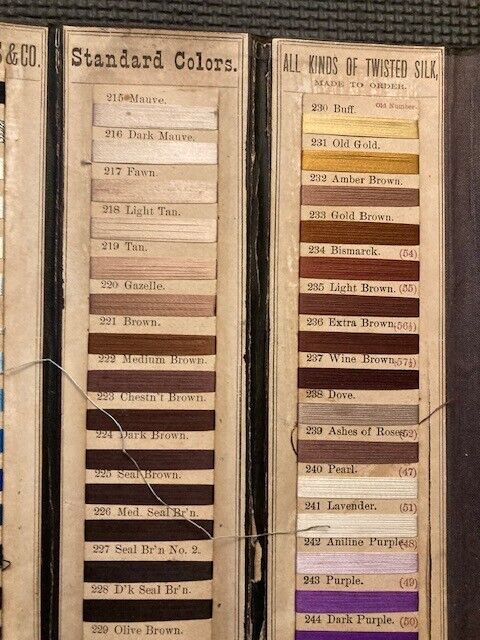 & CO.
Standard Colors.
215 Mauve.
216 Dark Mauve.
217 Fawn.
218 Light Tan.
219 Tan.
220 Gazelle.
221 Brown.
222 Medium Brown.
223 Chestn't Brown.
224 Dark Brown.
225 Seal Brown.
226 Med. Seal Br'n.
227 Seal Br'n No. 2.
228 D'k Seal Br'n.
229 Olive Brown.
ALL KINDS OF TWISTED SILK,
MADE TO ORDER.
Old Number.
230 Buff.
231 Old Gold.
232 Amber Brown.
233 Gold Brown.
234 Bismarck. (54)
235 Light Brown. (55)
236 Extra Brown. (56½)
237 Wine Brown. (57½)
238 Dove.
239 Ashes of Roses. (52)
240 Pearl. (47)
241 Lavender. (51)
242 Aniline Purple. (48)
243 Purple. (49)
244 Dark Purple. (50)